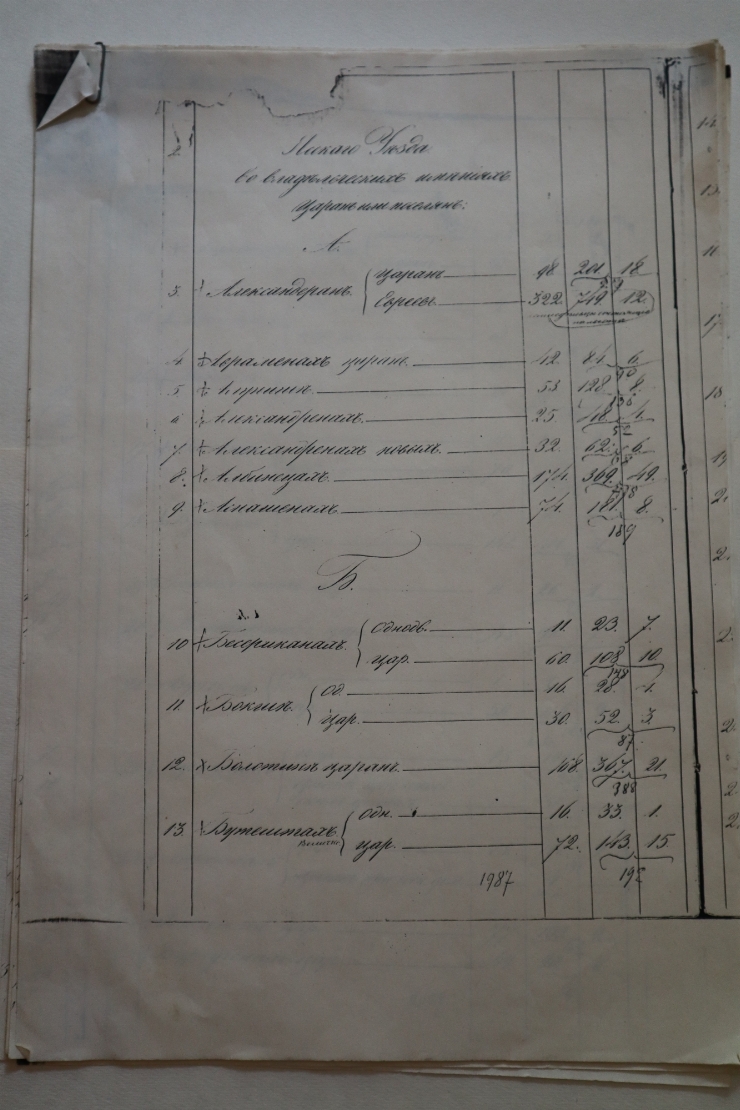 Ясскаго Уезда
во владѣльческихъ имѣніяхъ
Царанъ или поселянъ:
А.
3. Александеранъ { Царанъ 98. 201. 18.
Евреевъ 322. 719. 12.
4. Авраменахъ царанъ 42. 84. 6.
90
5. 53 128. 8.
136
6 Александренахъ 25 48. 4.
52
7. Александренахъ новыхъ 32. 62. 6.
8. Албинецахъ 174. 369. 49.
9. 74. 181. 8.
189
Б.
10 Бесериканахъ { Однодв. 11. 23. 7.
цар. 60. 108. 10.
148
11. Бокшѣ { од. 16. 28. 4.
цар. 30. 52. 3.
87.
12. Болотинѣ царанъ 168. 367. 21.
388
13. Бутештахъ { Одн. 16. 33. 1.
цар. 72. 143. 15
192
1987